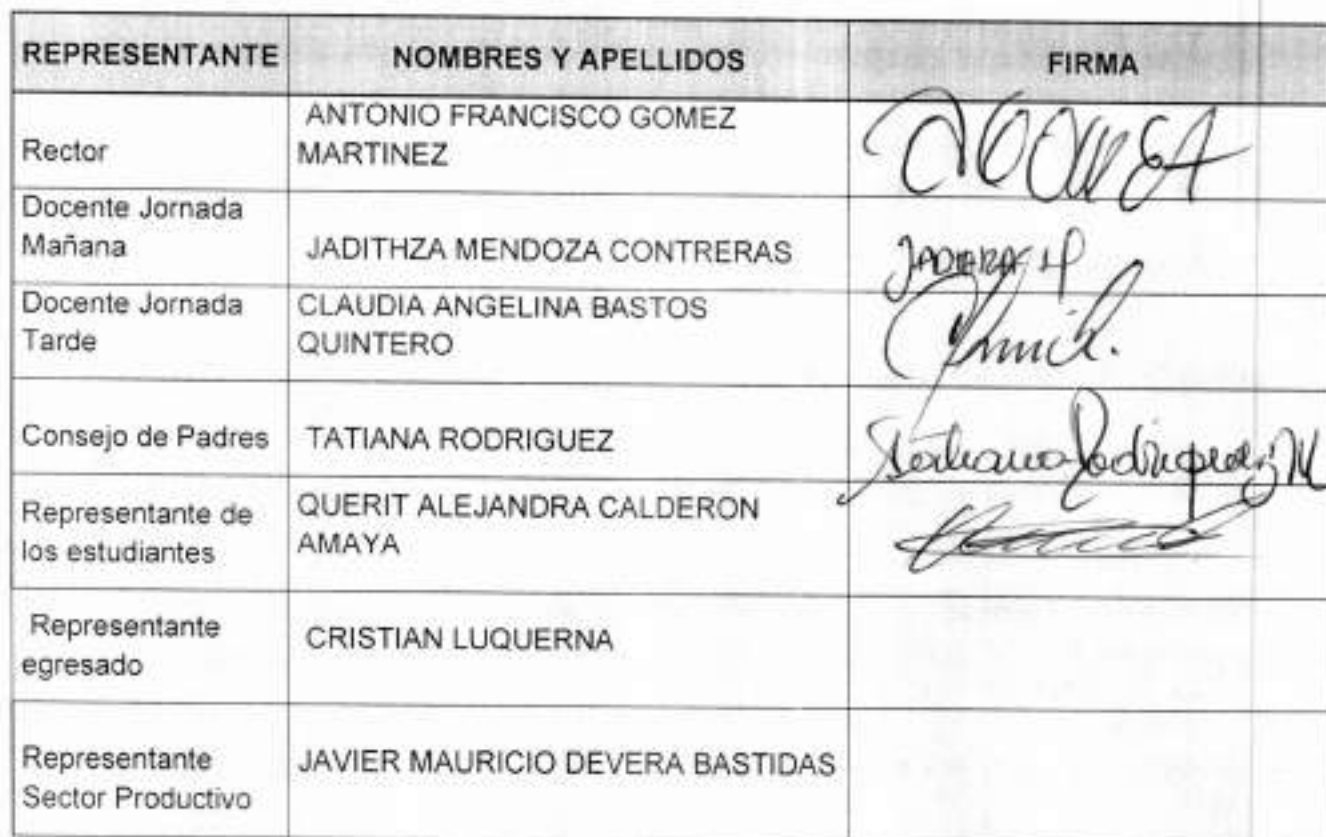 REPRESENTANTE NOMBRES Y APELLIDOS FIRMA
Rector
ANTONIO FRANCISCO GOMEZ
MARTINEZ
Docente Jornada
Mañana
JADITHZA MENDOZA CONTRERAS
Docente Jornada
Tarde
CLAUDIA ANGELINA BASTOS
QUINTERO
Consejo de Padres
TATIANA RODRIGUEZ
Tatiana Rodriguez M
Representante de
los estudiantes
QUERIT ALEJANDRA CALDERON
AMAYA
Representante
egresado
CRISTIAN LUQUERNA
Representante
Sector Productivo
JAVIER MAURICIO DEVERA BASTIDAS